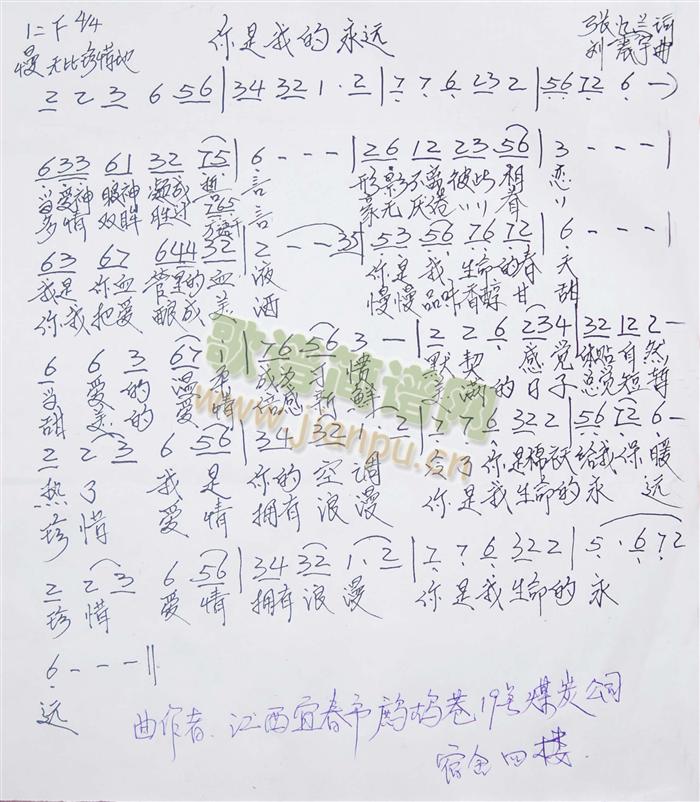 你是我的永远
1=F 4/4
慢 无比珍惜地
张 兰词
刘 曲
2 2 3 6 56 | 34 32 1 · 2 | 7 7 6 232 | 5672 6 —)
633 61 32 75 | 6 - - - | 26 12 23 56 | 3 - - - |
当爱神 眼神 凝成 言 形影不离彼此相恋
多情 双眸 胜过 万千 言
63 67 644 32 | 2 - - 35 | 53 56 76 72 | 6 - - - |
我是 你血 管里的 血 液 你是 我 生命的春 天
你我 把爱 酿成 美 酒 慢慢品味香醇甘 甜
6 6 3 67 | 76 56 3 — | 2 2 6 234 | 32 12 2 —
当 爱 的 温 成为习惯 默契 感觉 体贴自然
甜 美 的 爱情 信感 新鲜 的日子总觉短暂
2 2 3 6 56 | 34 32 1 · 2 | 7 7 6 322 | 56 72 6 —
热了 我是 你的空调 冷了你是棉袄给我保暖
珍惜 爱情 拥有浪漫 你是我生命的永远
2 2 3 6 56 | 34 32 1 · 2 | 7 7 6 322 | 5 · 672
珍惜 爱情 拥有浪漫 你是我生命的永
6 - - - ‖
远
曲作者 江西宜春市鹧鸪巷19号煤炭公司
宿舍四楼
歌谱简谱网
www.jianpu.cn